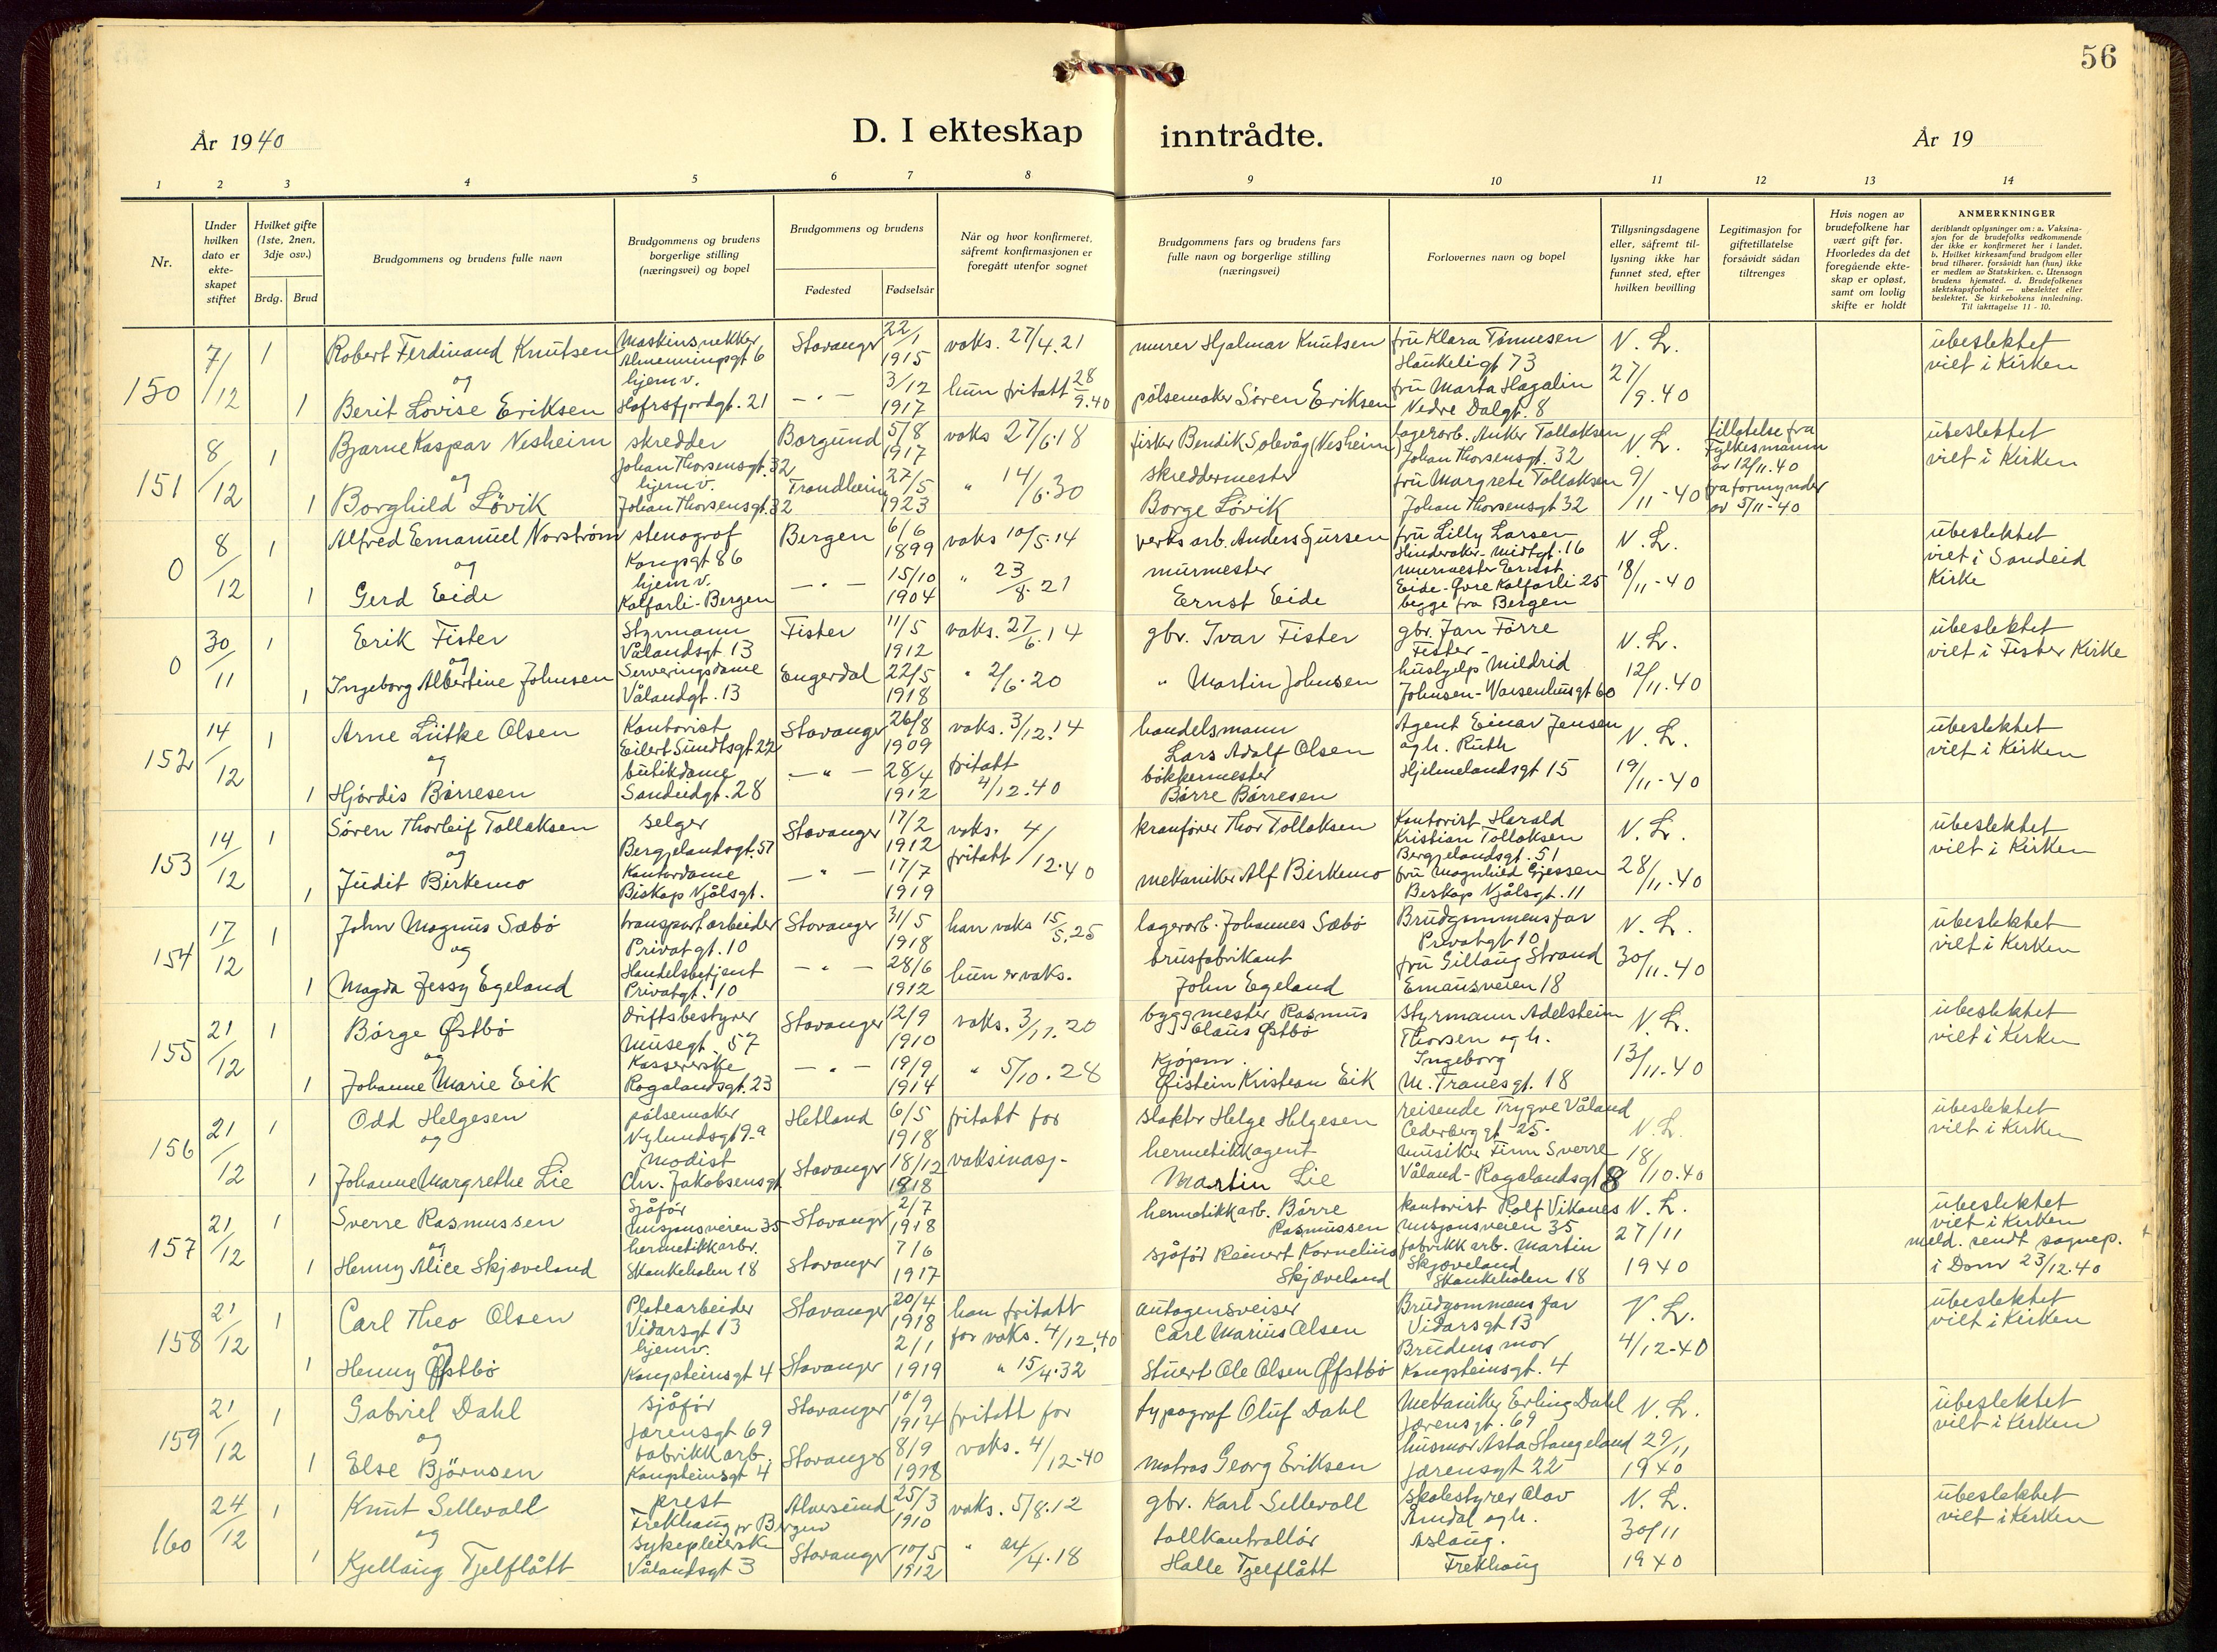 56
År 1940
D. I ekteskap inntrådte.
År 19
1 2 3 4 5 6 7 8 9 10 11 12 13 14
Nr.
Under hvilken dato er ekte-skapet stiftet
Hvilket gifte (1ste, 2nen, 3dje osv.)
Brdg. Brud
Brudgommens og brudens fulle navn
Brudgommens og brudens borgerlige stilling (næringsvei) og bopel
Brudgommens og brudens
Fødested
Fødselsår
Når og hvor konfirmeret, såfremt konfirmasjonen er foregått utenfor sognet
Brudgommens fars og brudens fars fulle navn og borgerlige stilling (næringsvei)
Forlovernes navn og bopel
Tillysningsdagene eller, såfremt til-lysning ikke har funnet sted, efter hvilken bevilling
Legitimasjon for giftetillatelse forsåvidt sådan tiltrenges
Hvis nogen av brudefolkene har vært gift før. Hvorledes da det foregående ekte-skap er opløst, samt om lovlig skifte er holdt
ANMERKNINGER
deriblandt oplysninger om: a. Vaksina-sjon for de brudefolks vedkommende der ikke er konfirmeret her i landet. b. Hvilket kirkesamfund brudgom eller brud tilhører, forsåvidt han (hun) ikke er medlem av Statskirken. c. Utensogn brudens hjemsted. d. Brudefolkenes slektskapsforhold — ubeslektet eller beslektet. Se kirkebokens innledning. Til iakttagelse 11 - 10.
150 7/12 1 Robert Ferdinand Knutsen Maskinsnekker Almenningsgt 6 Stavanger 22/1 1915 vaks. 27/4.21 murer Hjalmar Knutsen fru Klara Tønnesen Haukeligt 73 N. L. ubeslektet viet i Kirken
og
1 Berit Lovise Eriksen hjemv. Hafrsfjordgt. 21 — " — 3/12 1917 hun fritatt 28/9.40 pølsemaker Søren Eriksen fru Marta Hagalin Nedre Dalgt. 8 27/9.40
151 8/12 1 Bjarne Kaspar Nesheim skredder Johan Thorsensgt. 32 Borgund 5/8 1917 vaks 27/6.18 fisker Bendik Solevåg (Nesheim) lagerarb. Anker Tollaksen Johan Thorsensgt. 32 N. L. tillatelse fra Fylkesmann av 12/11.40 ubeslektet viet i Kirken
og
1 Borghild Løvik hjemv. Johan Thorsensgt. 32 Trondheim 27/5 1923 " 14/6.30 skreddermester Borge Løvik fru Margrete Tollaksen Johan Thorsensgt 32 9/11-40 fra formynder av 5/11-40
0 8/12 1 Alfred Emanuel Norstrøm stenograf Kongsgt 86 Bergen 6/6 1899 vaks 10/5.14 verksarb. Anders Gursen fru Lilly Larsen Hinderaker-Midtgt. 16 N. L. ubeslektet viet i Sandeid Kirke
og
1 Gerd Eide hjemv. Kalfarli-Bergen — " — 15/10 1904 " 23/8.21 murmester Ernst Eide murmester Ernst Eide-Øvre Kalfarli 25 begge fra Bergen 18/11-40
0 30/11 1 Erik Fister Styrmann Vålandsgt. 13 Fister 11/5 1912 vaks. 27/6.14 gbr. Ivar Fister gbr. Jan Førre Fister N. L. ubeslektet viet i Fister Kirke
og
1 Ingeborg Albertine Johnsen Serveringsdame Vålandgt. 13 Engerdal 22/5 1918 " 2/6.20 " Martin Johnsen hushjelp-Mildrid Johnsen-Waisenhusgt 60 12/11.40
152 14/12 1 Arne Lütke Olsen Kontorist Eilert Sundtsgt 22 Stavanger 26/8 1909 vaks. 3/12.14 handelsmann Lars Adolf Olsen Agent Einar Jensen og h. Ruth N. L. ubeslektet viet i Kirken
og
1 Hjørdis Børresen butikdame Sandeidgt. 28 — " — 28/4 1912 fritatt 4/12.40 bøkkermester Børre Børresen Hjelmelandsgt 15 19/11-40
153 14/12 1 Søren Thorleif Tollaksen selger Bergjelandsgt. 51 Stavanger 17/2 1912 vaks. fritatt 4/12.40 kranfører Thor Tollaksen Kontorist Harald Kristian Tollaksen Bergjelandsgt. 51 N. L. ubeslektet viet i Kirken
og
1 Judit Birkemo Kontordame Biskop Njålsgt. — " — 17/7 1919 mekaniker Alf Birkemo fru Magnhild Gjessen Biskop Njålsgt. 11 28/11.40
154 17/12 1 John Magnus Sæbø transportarbeider Privatgt. 10 Stavanger 31/5 1918 han vaks 15/5.25 lagerarb. Johannes Sæbø Brudgommens far Privatgt 10 N. L. ubeslektet viet i Kirken
og
1 Magda Jessy Egeland Handelsbetjent Privatgt. 10 — " — 28/6 1912 hun er vaks. brusfabrikant John Egeland fru Gitlaug Strand Emausveien 18 30/11.40
155 21/12 1 Børge Østbø driftsbestyrer Musegt. 57 Stavanger 12/9 1910 vaks. 3/11.20 byggmester Rasmus Claus Østbø Styrmann Adelsheim Thorsen og h. Ingeborg N. L. ubeslektet viet i Kirken
og
1 Johanne Marie Eik Kassererske Rogalandsgt. 23 — " — 19/9 1914 " 5/10.28 Kjøpm. Øistein Kristian Eik M. Tranesgt. 18 13/11.40
156 21/12 1 Odd Helgesen pølsemaker Nylundsgt 9a Hetland 6/5 1918 fritatt for slakter Helge Helgesen reisende Trygve Våland Cederberggt 25 N. L. ubeslektet viet i Kirken
og
1 Johanne Margrethe Lie modist Chr. Jakobsensgt Stavanger 18/12 1918 vaksinasj. hermetikkagent Martin Lie musiker Finn Sverre Våland-Rogalandsgt 8 18/10.40
157 21/12 1 Sverre Rasmussen Sjåfør Misjonsveien 35 Stavanger 2/7 1918 hermetikkarb. Børre Rasmussen kontorist Rolf Vikanes Misjonsveien 35 N. L. ubeslektet viet i Kirken
og
1 Henny Alice Skjæveland hermetikkarbr. Skankeholen 18 Stavanger 7/6 1917 sjåfør Reinert Kornelius Skjæveland fabrikkarb. Martin Skjæveland Skankeholen 18 27/11 1940 meld. sendt sognep. i Dom 23/12.40
158 21/12 1 Carl Theo Olsen Platearbeider Vidarsgt 13 Stavanger 20/4 1918 han fritatt for vaks. 4/12.40 autogensveiser Carl Marius Olsen Brudgommens far Vidarsgt 13 N. L. ubeslektet viet i Kirken
og
1 Henny Øfstbø hjemv. Kongsteinsgt 4 Stavanger 2/1 1919 " 15/4.32 Stuert Ole Olsen Øfstbø Brudens mor Kongsteinsgt. 4 4/12-40
159 21/12 1 Gabriel Dahl sjåfør Jærensgt 69 Stavanger 10/9 1914 fritatt for typograf Oluf Dahl Mekaniker Erling Dahl Jærensgt. 69 N. L. ubeslektet viet i Kirken
og
1 Else Bjørnsen fabrikkarb. Kongsteinsgt 4 Stavanger 8/9 1918 vaks. 4/12-40 matros Georg Eriksen husmor Asta Stangeland Jærensgt 22 29/11 1940
160 24/12 1 Knut Sellevoll prest Frekhaug pr Bergen Alversund 25/3 1910 vaks. 5/8.12 gbr. Karl Sellevoll skolestyrer Olav Amdal og h. N. L. ubeslektet viet i Kirken
og
1 Kjellaug Tjelflått sykepleierske Vålandsgt 3 Stavanger 10/5 1912 " 24/4.18 tollkontrollør Halle Tjelflått Aslaug. Frekhaug 30/11 1940